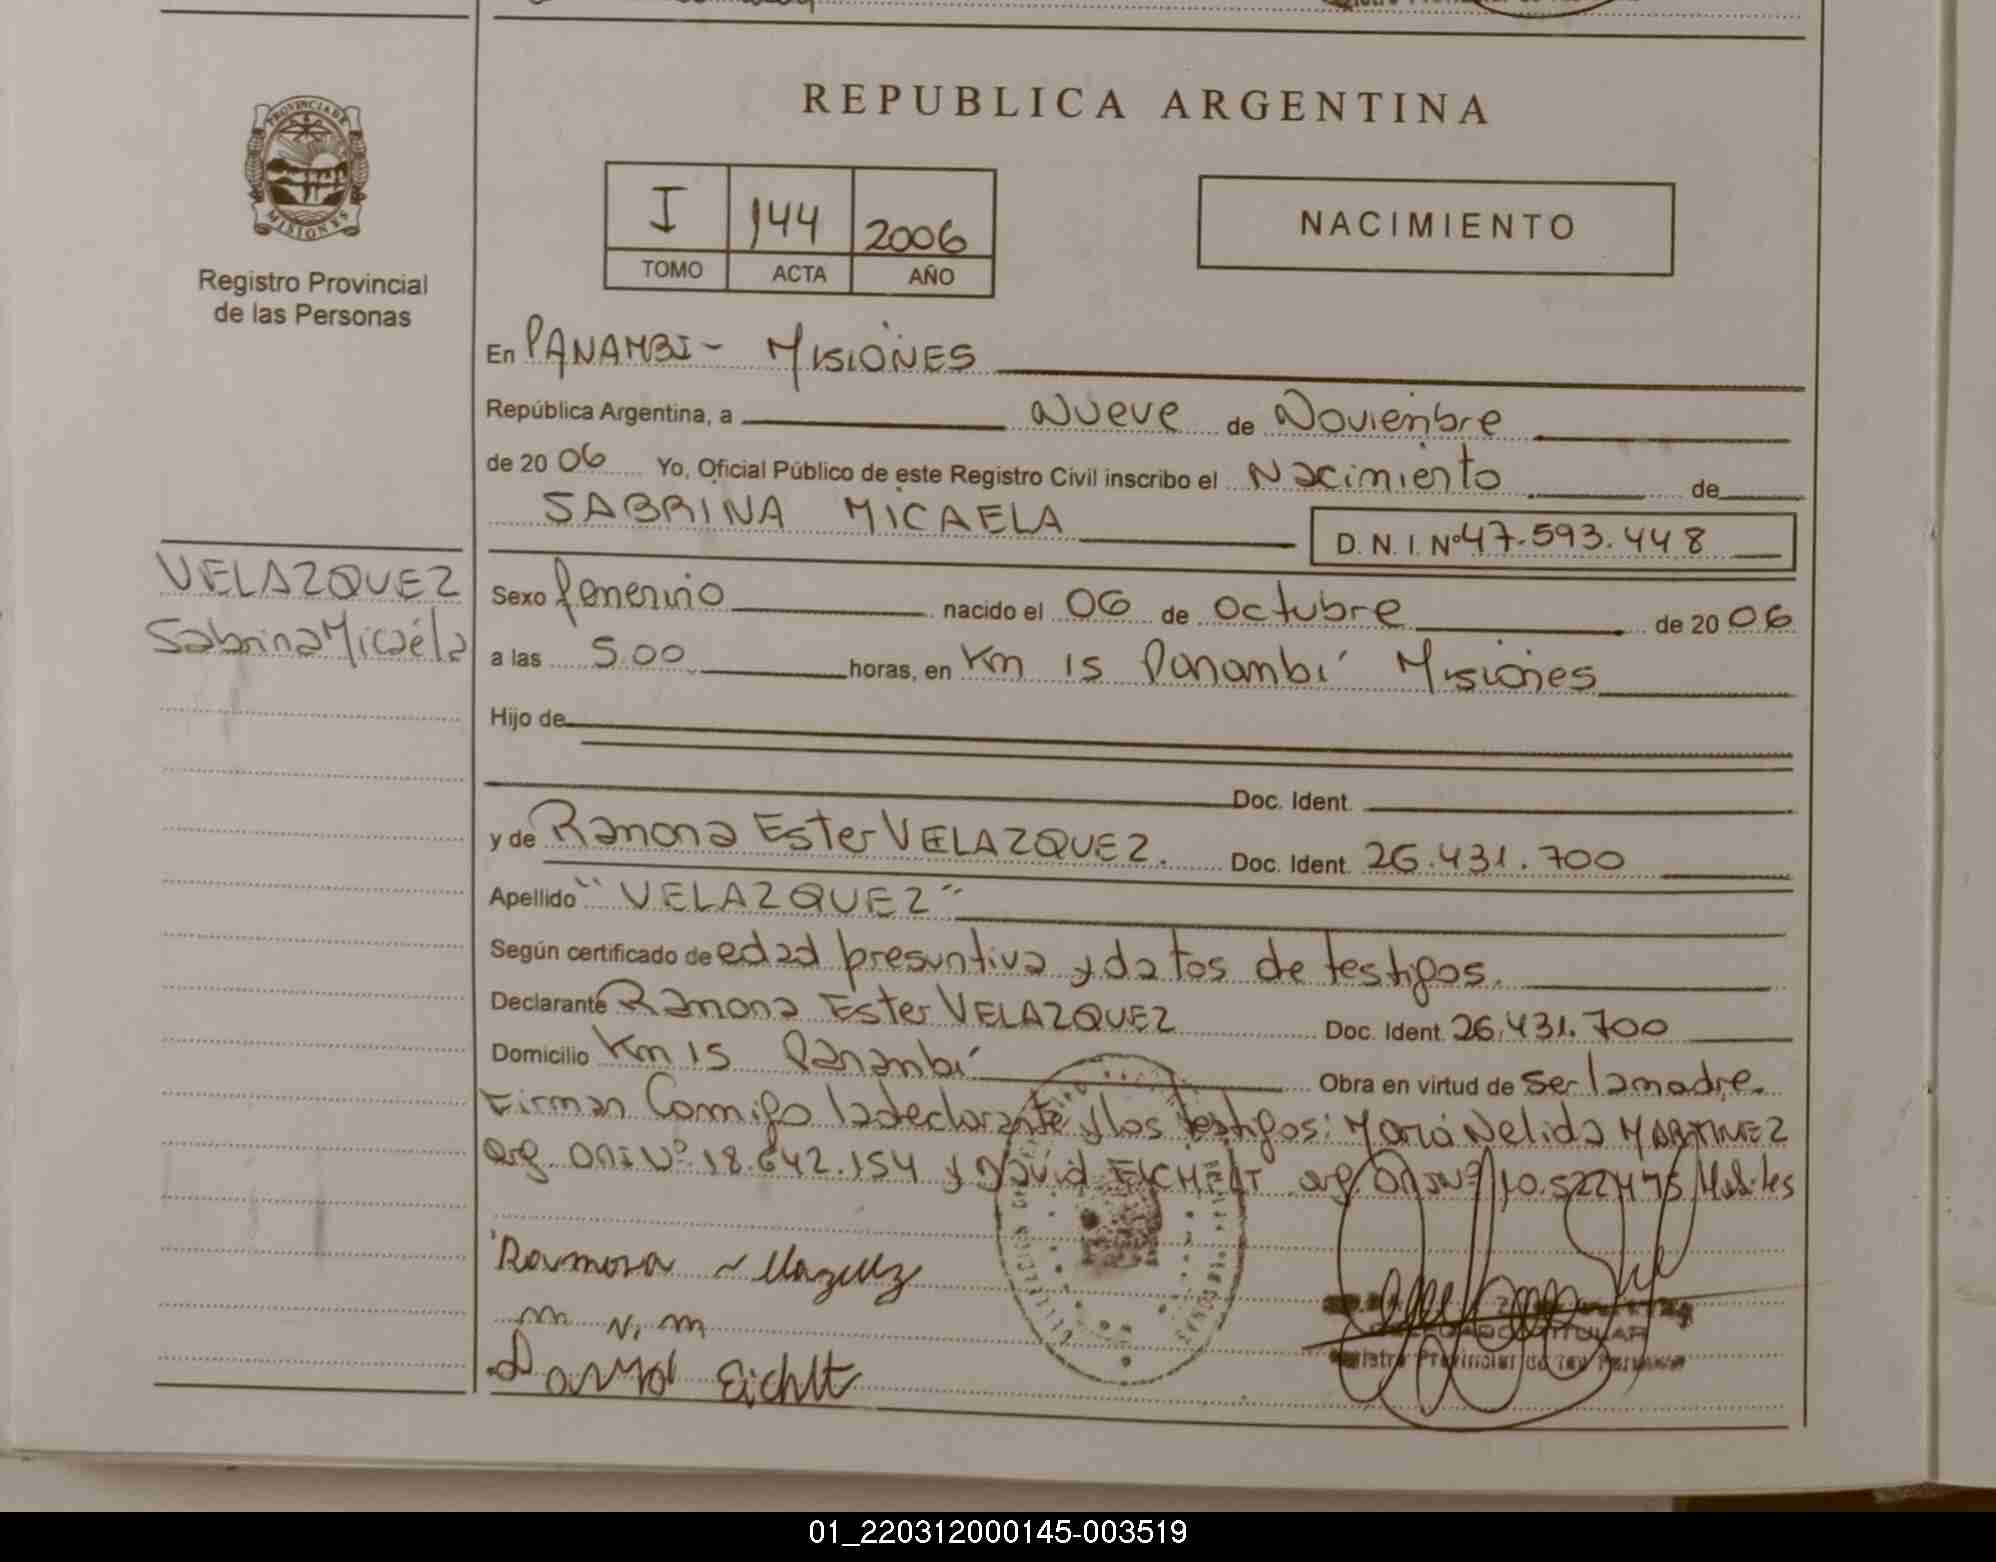 REPUBLICA ARGENTINA
PROVINCIA DE MISIONES
Registro Provincial
de las Personas
I 144 2006
TOMO ACTA AÑO
NACIMIENTO
En PANAMBI - MISIONES
República Argentina, a Nueve de Noviembre
de 2006 Yo, Oficial Público de este Registro Civil inscribo el Nacimiento de
SABRINA MICAELA D. N. I. Nº 47.593.448
VELAZQUEZ
Sabrina Micaela
Sexo femenino nacido el 06 de octubre de 2006
a las 5.00 horas, en Km 15 Panambí Misiones
Hijo de
Doc. Ident.
y de Ramona Ester VELAZQUEZ. Doc. Ident. 26.431.700
Apellido "VELAZQUEZ"
Según certificado de edad presuntiva y datos de testigos.
Declarante Ramona Ester VELAZQUEZ Doc. Ident. 26.431.700
Domicilio Km 15 Panambí Obra en virtud de ser la madre.
Firman Comigo la declarante y los testigos: María Nelida MARTINEZ
arg. DNI Nº 18.642.154 y David EICHELT arg DNI Nº 10.522.475 Hábiles
Ramona Velazquez
m N. m
David Eichlt
TITULAR
Registro Provincial de las Personas
01_220312000145-003519